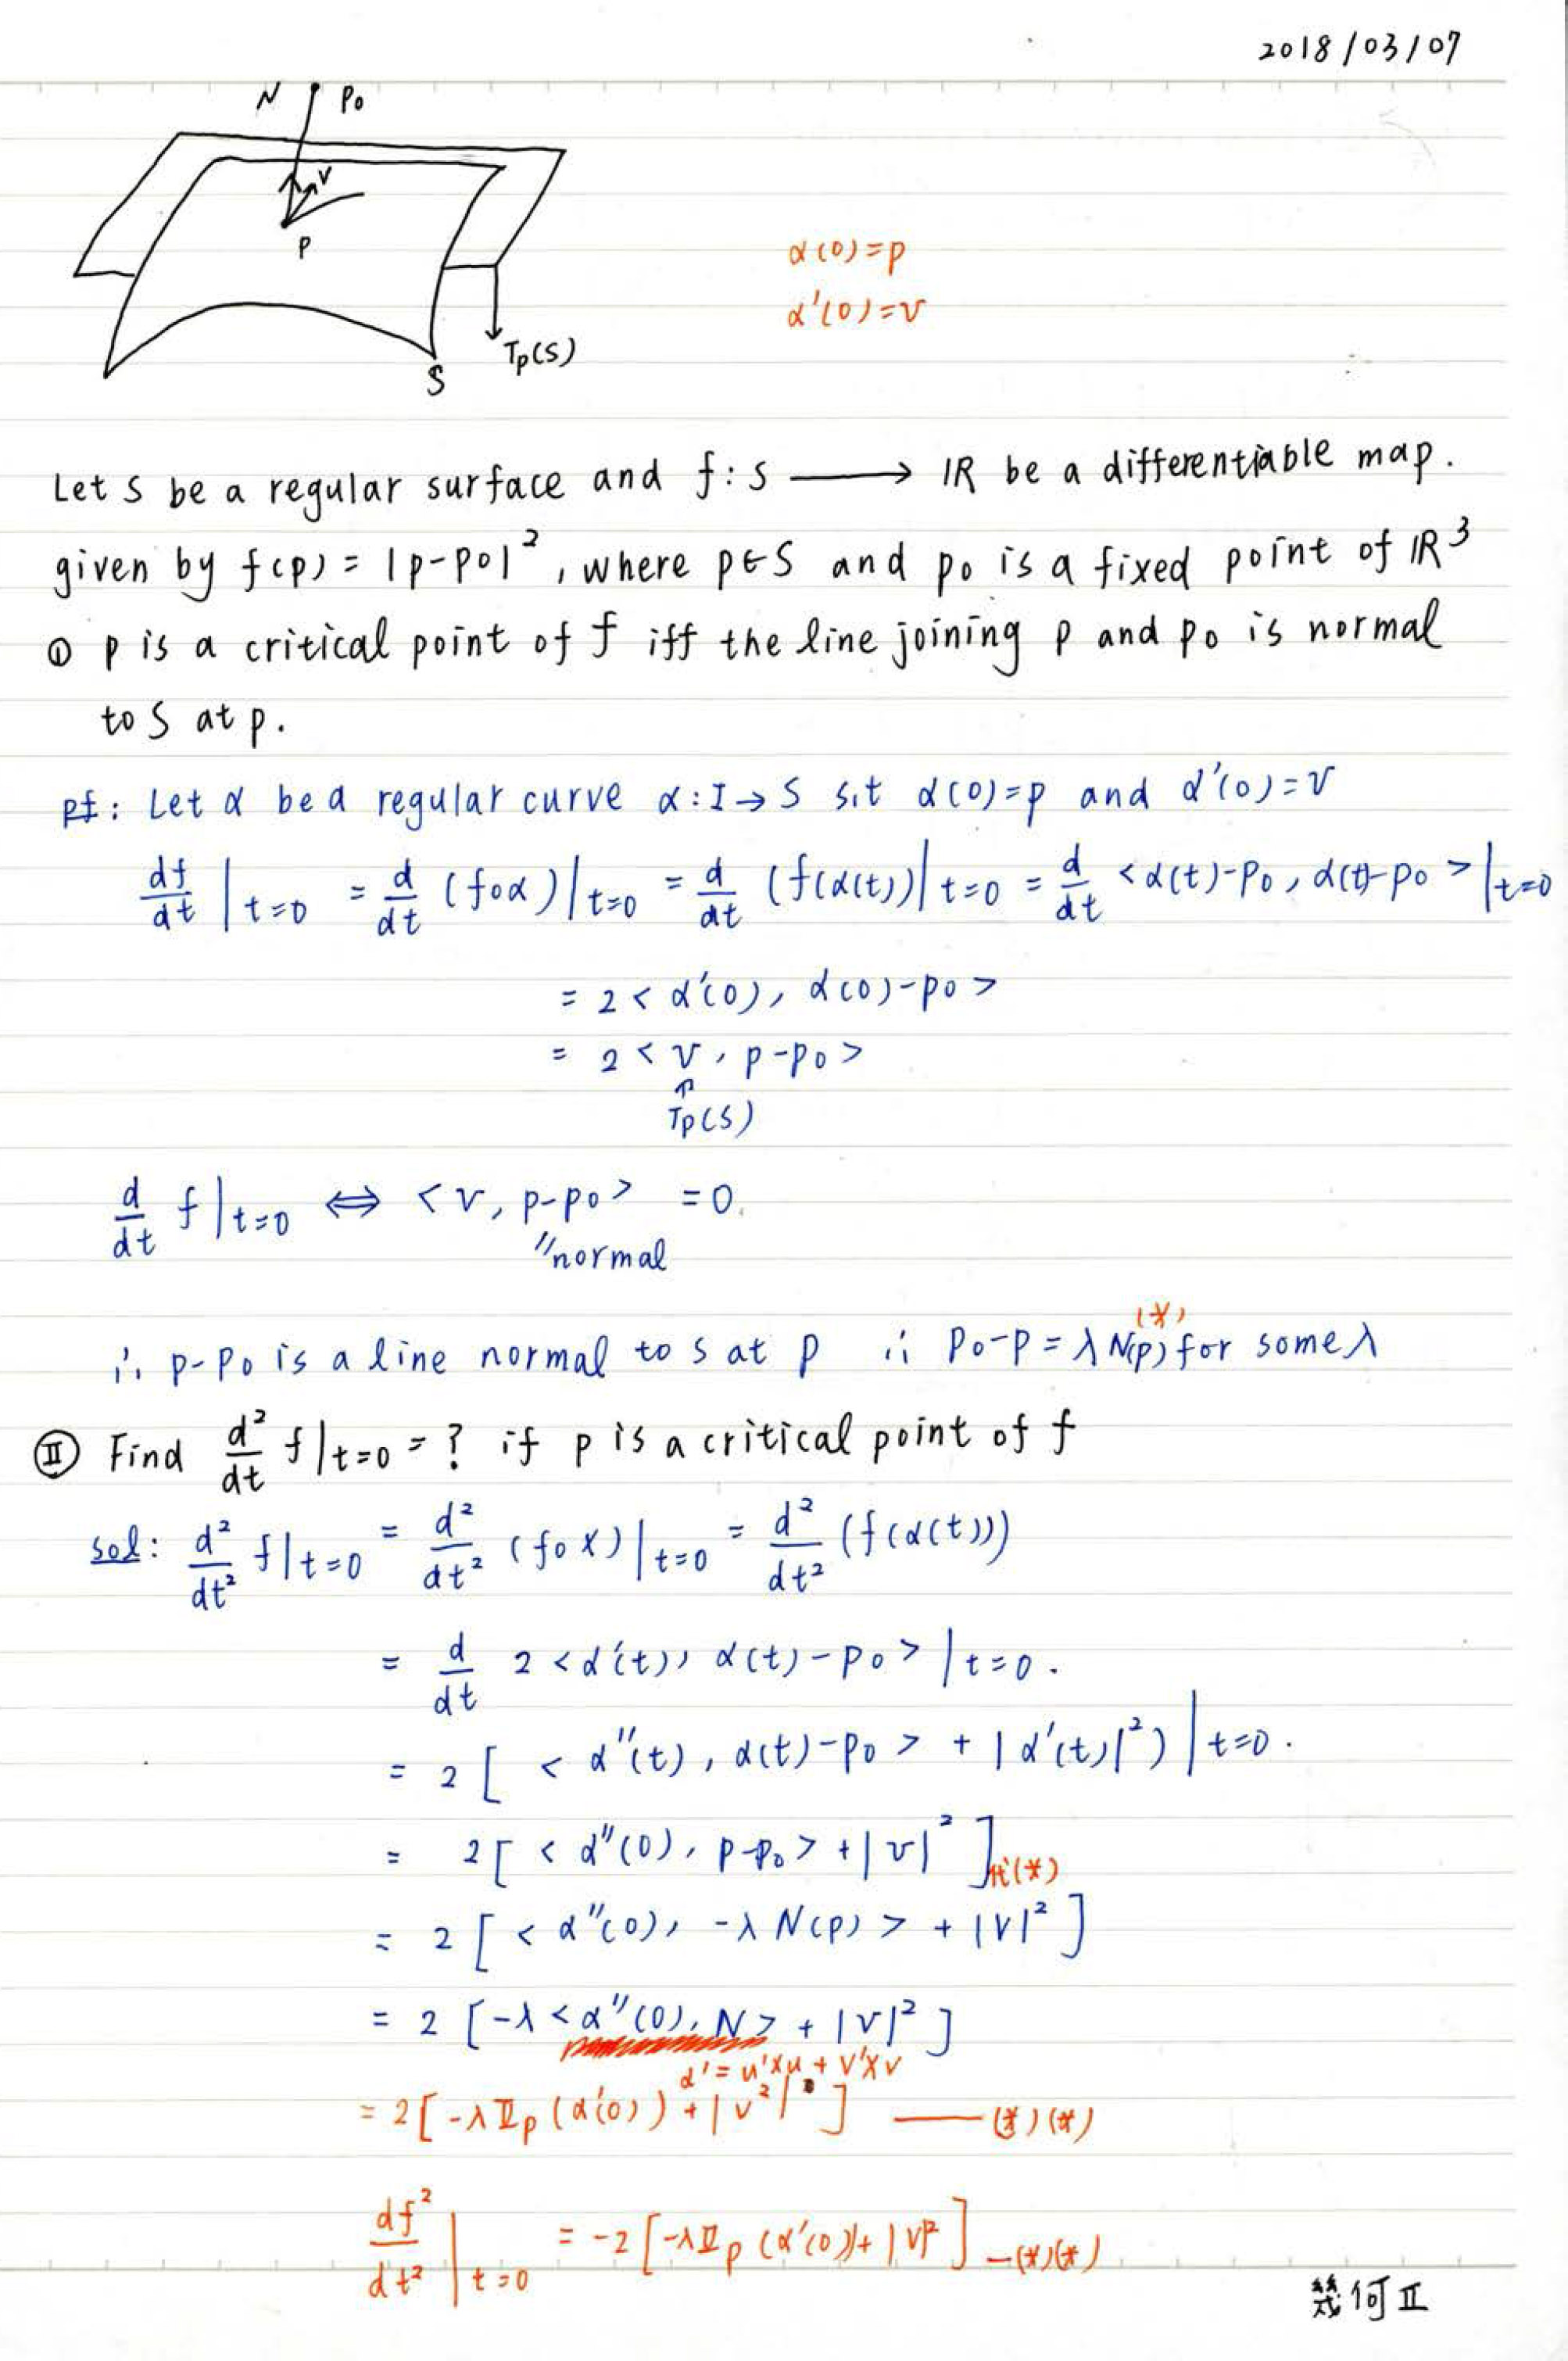 2018/03/07
N P0
V
P
α(0)=p
α'(0)=v
Tp(S)
S
Let S be a regular surface and f: S ⟶ ℝ be a differentiable map.
given by f(p) = |p-p0|², where p∈S and p0 is a fixed point of ℝ³
① p is a critical point of f iff the line joining p and p0 is normal
to S at p.
pf: Let α be a regular curve α: I → S s.t α(0)=p and α'(0)=v
df/dt |t=0 = d/dt (f∘α)|t=0 = d/dt (f(α(t))|t=0 = d/dt <α(t)-p0, α(t)-p0>|t=0
= 2<α'(0), α(0)-p0>
= 2<v, p-p0>
↑
Tp(S)
d/dt f|t=0 ⇔ <v, p-p0> = 0.
"normal
∴ p-p0 is a line normal to S at p ∴ p0-p = λN(p) for some λ (*)
Ⅱ Find d²/dt f|t=0 = ? if p is a critical point of f
sol: d²/dt² f|t=0 = d²/dt² (f∘x)|t=0 = d²/dt² (f(α(t)))
= d/dt 2<α'(t), α(t)-p0>|t=0.
= 2[ <α''(t), α(t)-p0> + |α'(t)|²)|t=0.
= 2[ <α''(0), p-p0> + |v|² ] 代(*)
= 2[ <α''(0), -λN(p)> + |v|² ]
= 2[ -λ<α''(0), N> + |v|² ]
α' = u'Xu + v'Xv
= 2[ -λⅡp(α'(0)) + |v²| ] —— (*)(*)
df²/dt² |t=0 = -2[ -λⅡp(α'(0)) + |v|² ] —(*)(*)
幾何Ⅱ